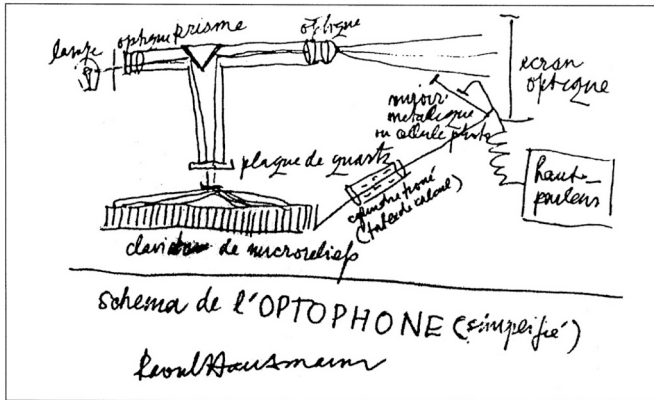 lampe
optique
prisme
optique
écran
optique
miroir
métallique
ou cellule photo
plaque de quartz
haut-
parleur
cylindre troué
(table de calcul)
de microreliefs
schema de l'OPTOPHONE (simplifié)
Raoul Hausmann